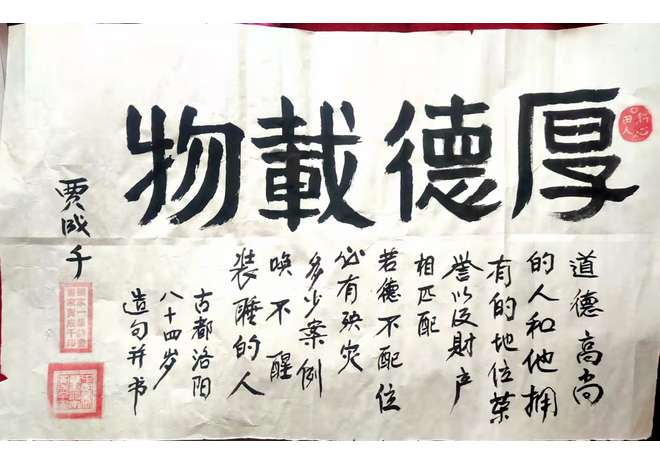 厚德載物
道德高尚
的人和他拥
有的地位荣
誉以及财产
相匹配
若德不配位
必有殃灾
多少案例
唤不醒
装睡的人
古都洛阳
八十四岁
造句并书
贾成千